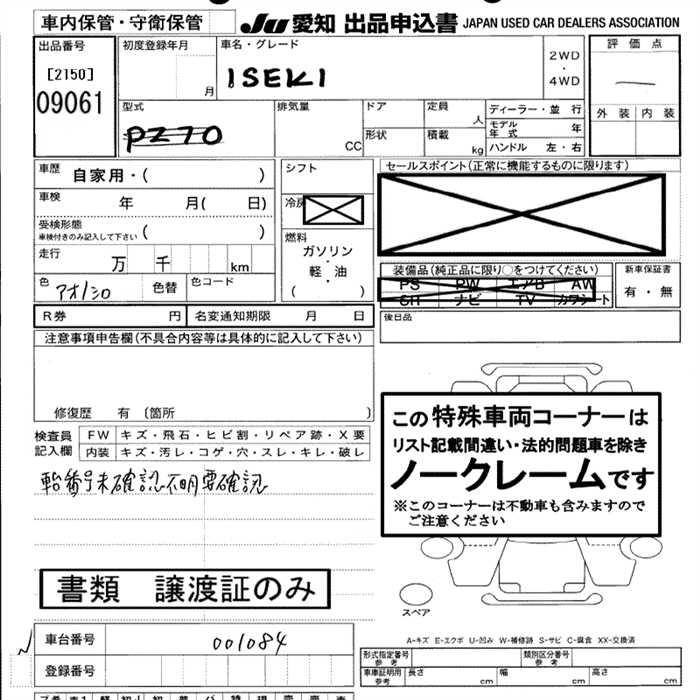 車内保管・守衛保管
JU 愛知 出品申込書 JAPAN USED CAR DEALERS ASSOCIATION
出品番号
[2150]
09061
初度登録年月
月
車名・グレード
ISEKI
2WD
・
4WD
評価点
外装 内装
型式
PZ70
排気量
CC
ドア
形状
定員
人
積載
kg
ディーラー・並行
モデル年式 年
ハンドル 左・右
車歴 自家用・( )
車検 年 月( 日)
受検形態
車検付きのみ記入して下さい ( )
走行 万 千 km
色 アオ/シロ 色替 色コード
シフト
冷房
燃料
ガソリン
・
軽・油
( )
セールスポイント(正常に機能するものに限ります)
装備品(純正品に限り○をつけてください)
PS PW エアB AW
SR ナビ TV カワシート
新車保証書
有・無
R券 円 名変通知期限 月 日
後日品
注意事項申告欄(不具合内容等は具体的に記入して下さい)
修復歴 有 〔箇所 〕
検査員記入欄
FW キズ・飛石・ヒビ割・リペア跡・X要
内装 キズ・汚レ・コゲ・穴・スレ・キレ・破レ
この特殊車両コーナーは
リスト記載間違い・法的問題車を除き
ノークレームです
※このコーナーは不動車も含みますので
ご注意ください
書類 譲渡証のみ
スペア
A-キズ E-エクボ U-凹み W-補修跡 S-サビ C-腐食 XX-交換済
車台番号 001084
登録番号
形式指定番号
参考
類別区分番号
参考
車庫証明用
参考
長さ cm 幅 cm 高さ cm